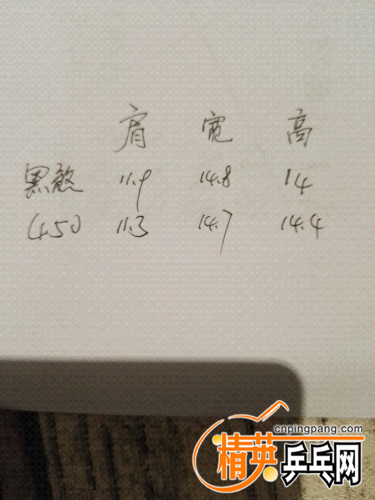 肩 宽 高
黑煞 11.9 14.8 14
450 11.3 14.7 14.4
cnpingpang.com
精英乒乓网